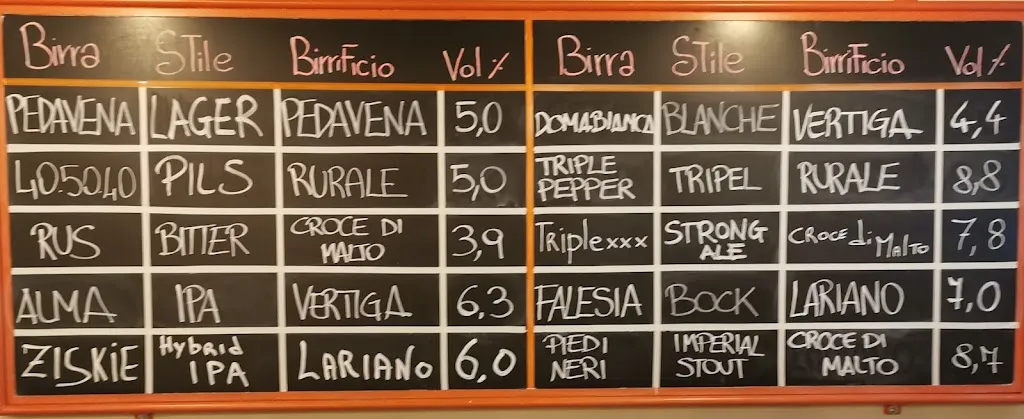 Birra STile BirriFicio Vol % Birra STile BirriFicio Vol %
PEDAVENA LAGER PEDAVENA 5,0 DOMABIANCA BLANCHE VERTIGA 4,4
40.50.40 PILS RURALE 5,0 TRIPLE PEPPER TRIPEL RURALE 8,8
RUS BITTER CROCE DI MALTO 3,9 Triplexxx STRONG ALE CROCE di MALTO 7,8
ALMA IPA VERTIGA 6,3 FALESIA BOCK LARIANO 7,0
ZISKIE Hybrid IPA LARIANO 6,0 PIEDI NERI IMPERIAL STOUT CROCE DI MALTO 8,7